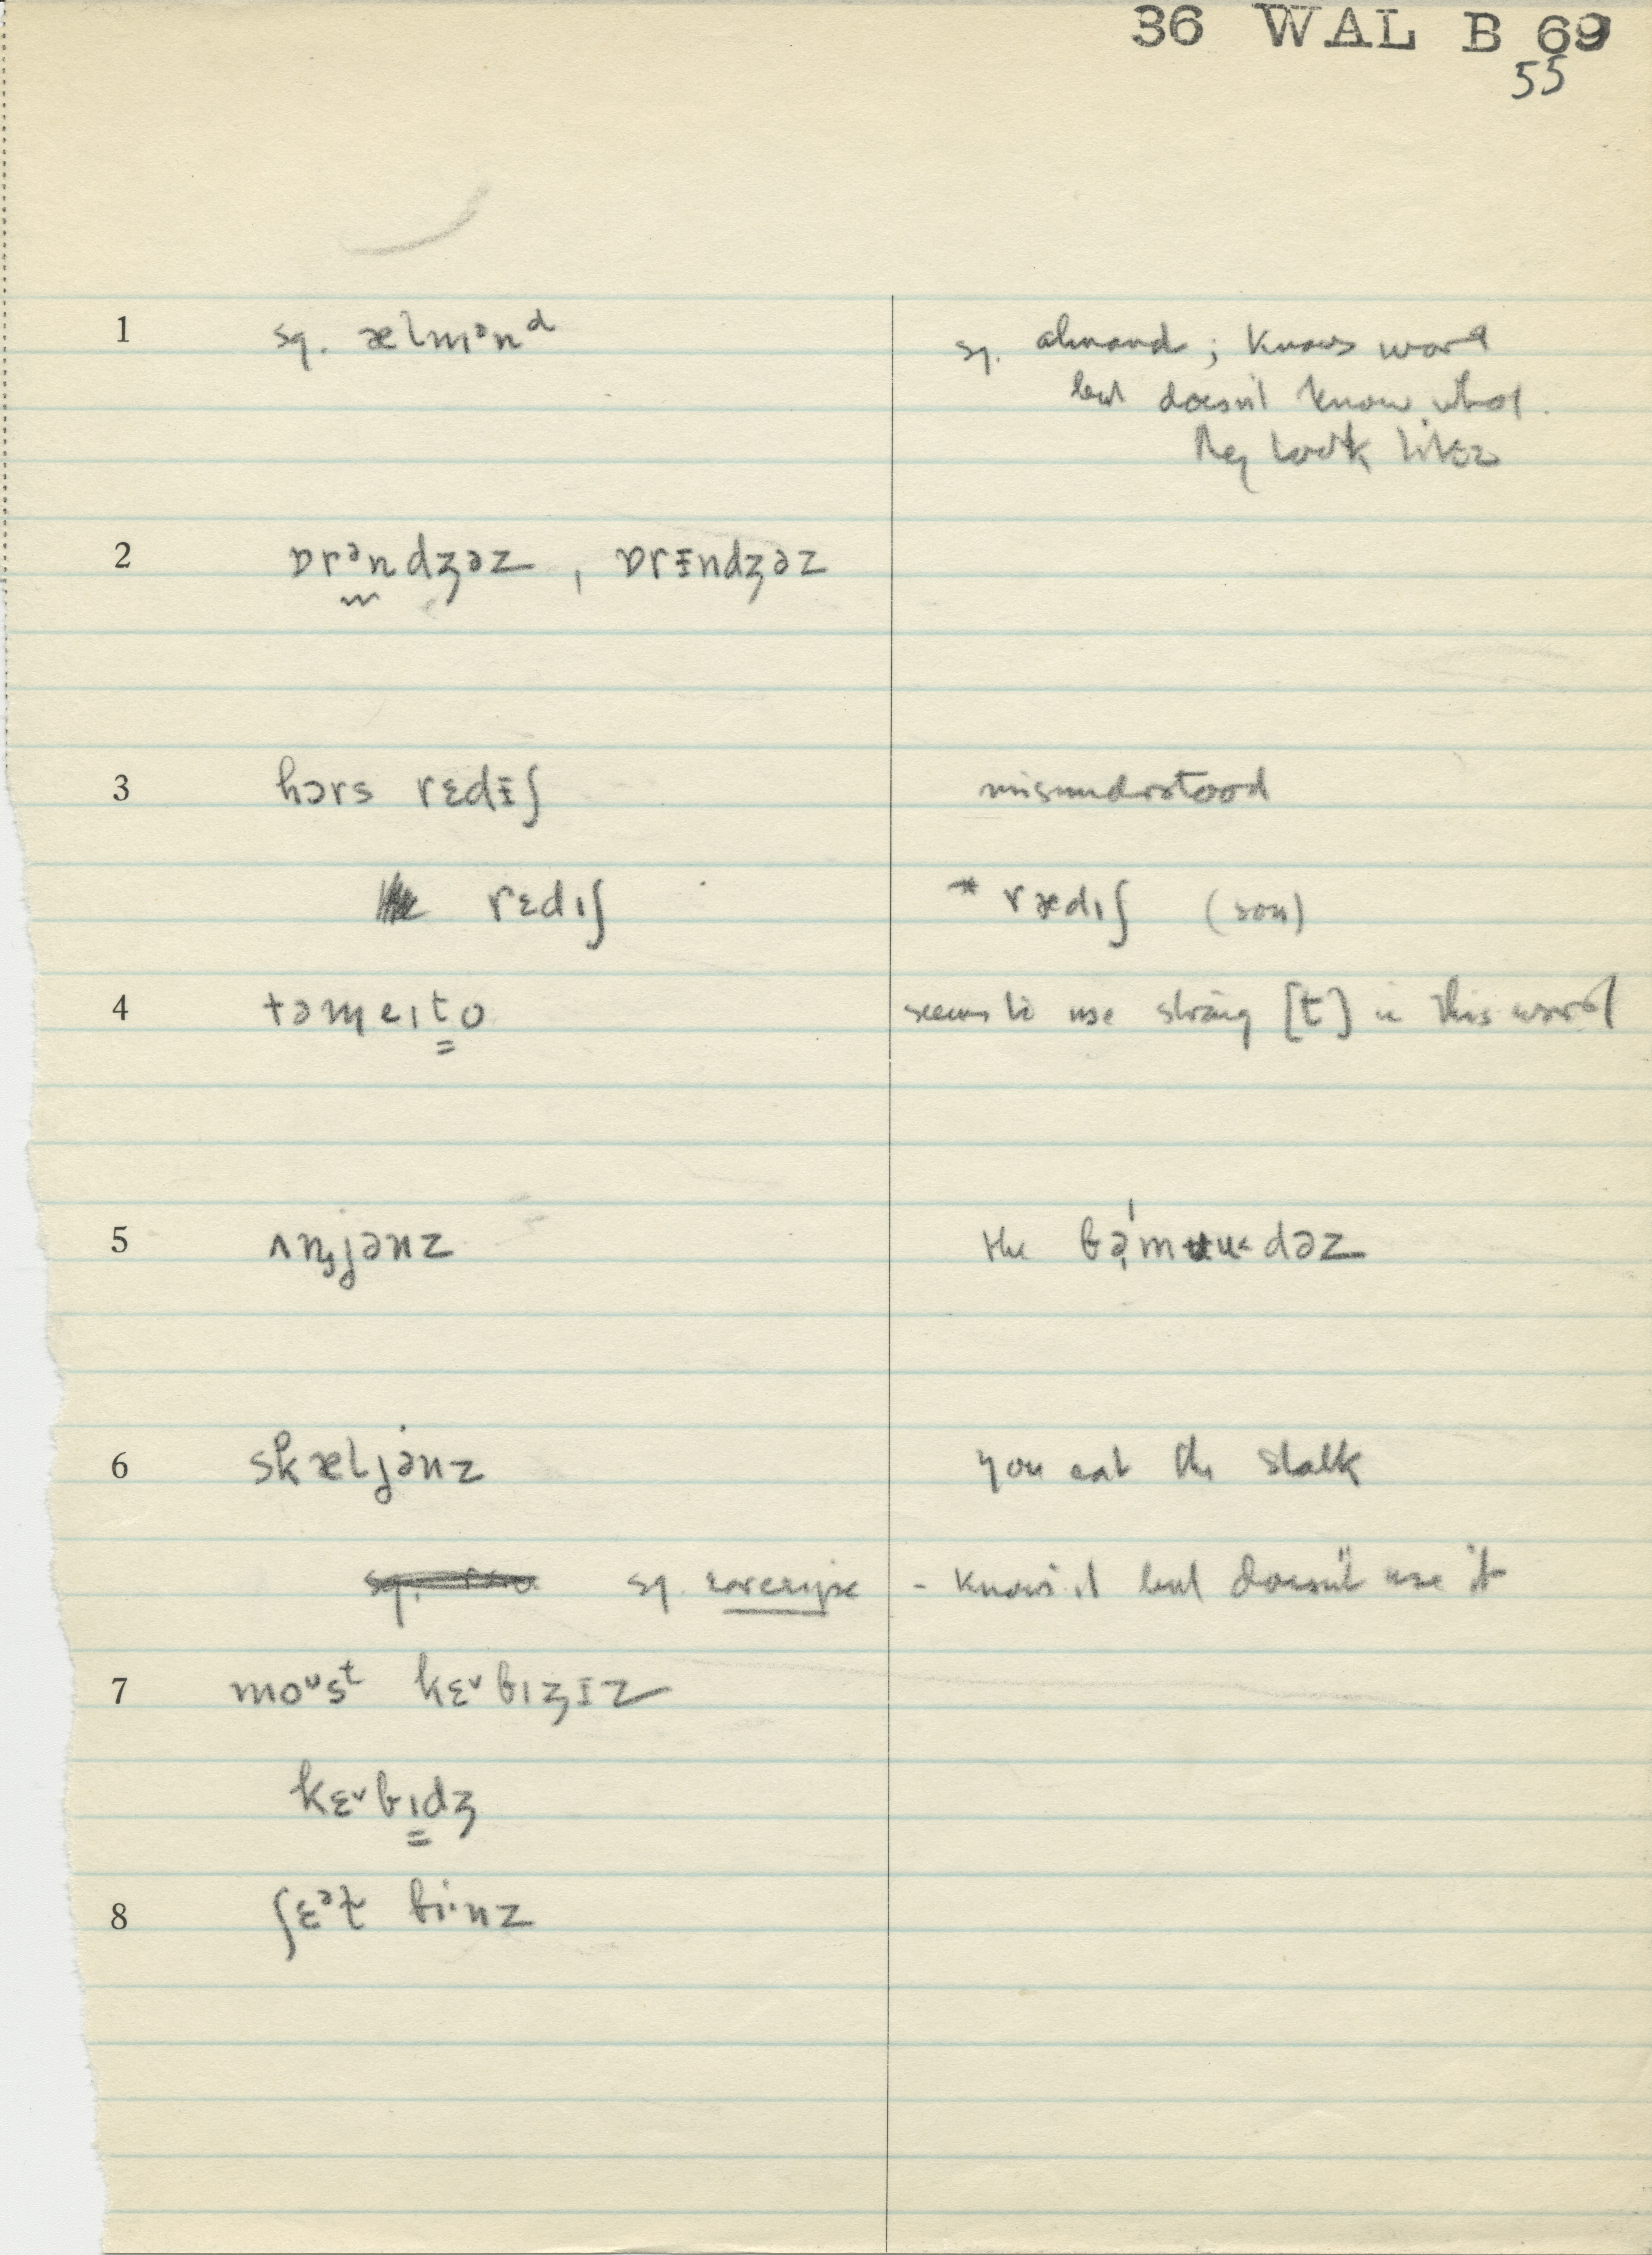 36 WAL B 69
55
1 sq. ælmᵊnᵈ sq. almond; knows word
but doesn't know what
they look like
2 ɒrᵊndʒəz, ɒrɪndʒəz
3 hɔrs rɛdɪʃ misunderstood
rɛdıʃ * rædıʃ (son)
4 təmeıto seems to use strong [t] in this word
5 ʌnjənz the
6 skæljənz you eat the stalk
sq. - knows it but doesn't use it
7 moᵘsᵗ kɛᵛbıʒɪz
kɛᵛbıdʒ
8 ʃɛᵊt bi·nz